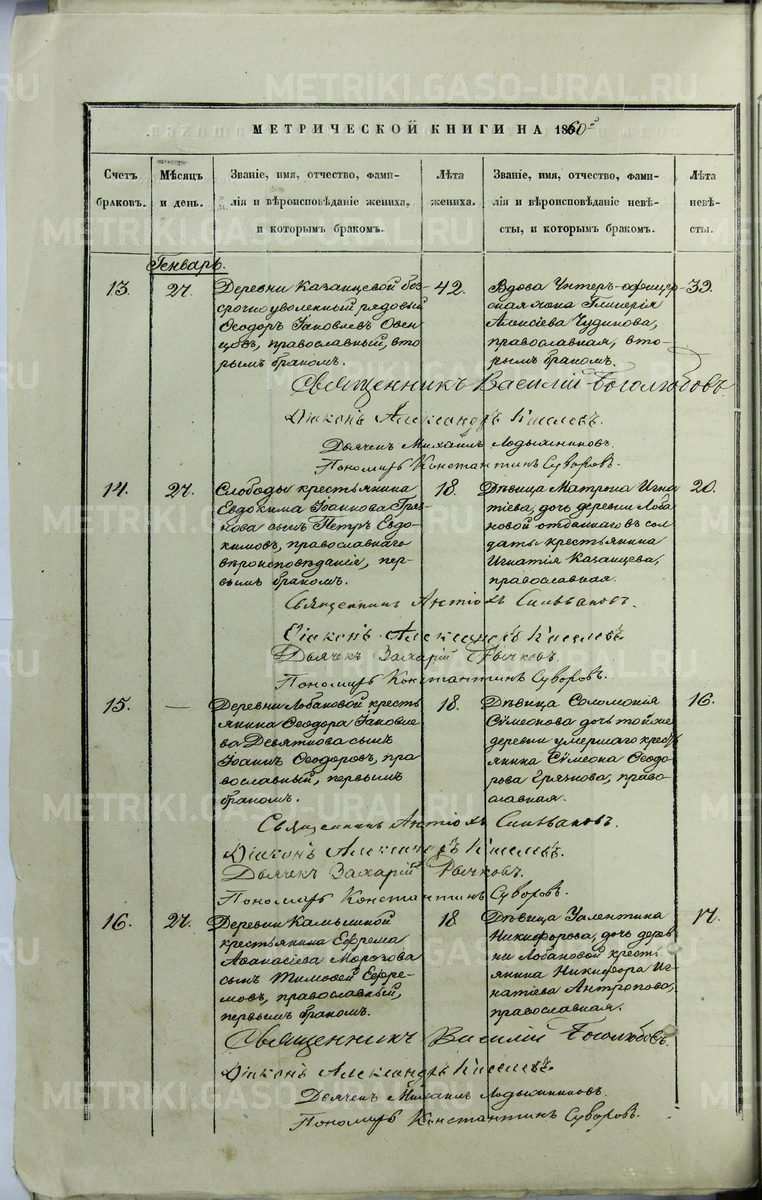 МЕТРИЧЕСКОЙ КНИГИ НА 1860й
Счетъ браковъ.
Мѣсяцъ и день.
Званіе, имя, отчество, фамилія и вѣроисповѣданіе жениха, и которымъ бракомъ.
Лѣта жениха.
Званіе, имя, отчество, фамилія и вѣроисповѣданіе невѣсты, и которымъ бракомъ.
Лѣта невѣсты.
Генварь.
13.
27.
Деревни Казанцевой без-
срочноуволенный рядовый
Ѳеодоръ Іаковлевъ Овен
цовъ, православный, вто
рымъ бракомъ.
42.
Вдова Унтеръ-офицер-
ская жена Гликерія
Алексіева Чудинова,
православная, вто-
рымъ бракомъ.
39.
Священникъ Василій Боголюбовъ.
Діаконъ Александръ Киселевъ.
Дьячекъ Михаилъ Лодыжниковъ.
Пономарь Константинъ Суворовъ.
14.
27.
Слободы крестьянина
Евдокима Іоаннова Гряз-
нова сынъ Петръ Евдо-
кимовъ, православнаго
вѣроисповѣданія, пер-
вымъ бракомъ.
18.
Дѣвица Матрона Игна
тіева, дочь деревни Лоба
новой отданнаго въ сол
даты крестьянина
Игнатія Казанцева,
православная.
20.
Священникъ Антіохъ Сильвановъ.
Діаконъ Александръ Киселевъ.
Дьячекъ Захарій Рычковъ.
Пономарь Константинъ Суворовъ.
15.
—
Деревни Лобановой кресть
янина Ѳеодора Іаковле
ва Девяткова сынъ
Іоаннъ Ѳеодоровъ, пра
вославный, первымъ
бракомъ.
18.
Дѣвица Соломонія
Сѵмеонова дочь той же
деревни умершаго кресть
янина Сѵмеона Ѳеодо-
рова Грязнова, право-
славная.
16.
Священникъ Антіохъ Сильвановъ.
Діаконъ Александръ Киселевъ.
Дьячекъ Захарій Рычковъ.
Пономарь Константинъ Суворовъ.
16.
27.
Деревни Камышной
крестьянина Ефрема
Аѳанасіева Морозова
сынъ Тимоѳей Ефре-
мовъ, православный,
первымъ бракомъ.
18.
Дѣвица Уалентина
Никифорова, дочь дерев
ни Лобановой кресть
янина Никифора Иг-
натіева Антропова,
православная.
17.
Священникъ Василій Боголюбовъ.
Діаконъ Александръ Киселевъ.
Дьячекъ Михаилъ Лодыжниковъ.
Пономарь Константинъ Суворовъ.
METRIKI.GASO-URAL.RU